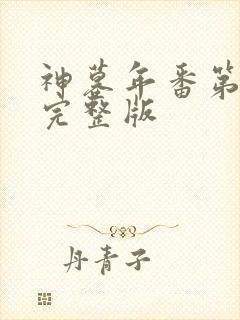 神墓年番第
完整版
丹青子